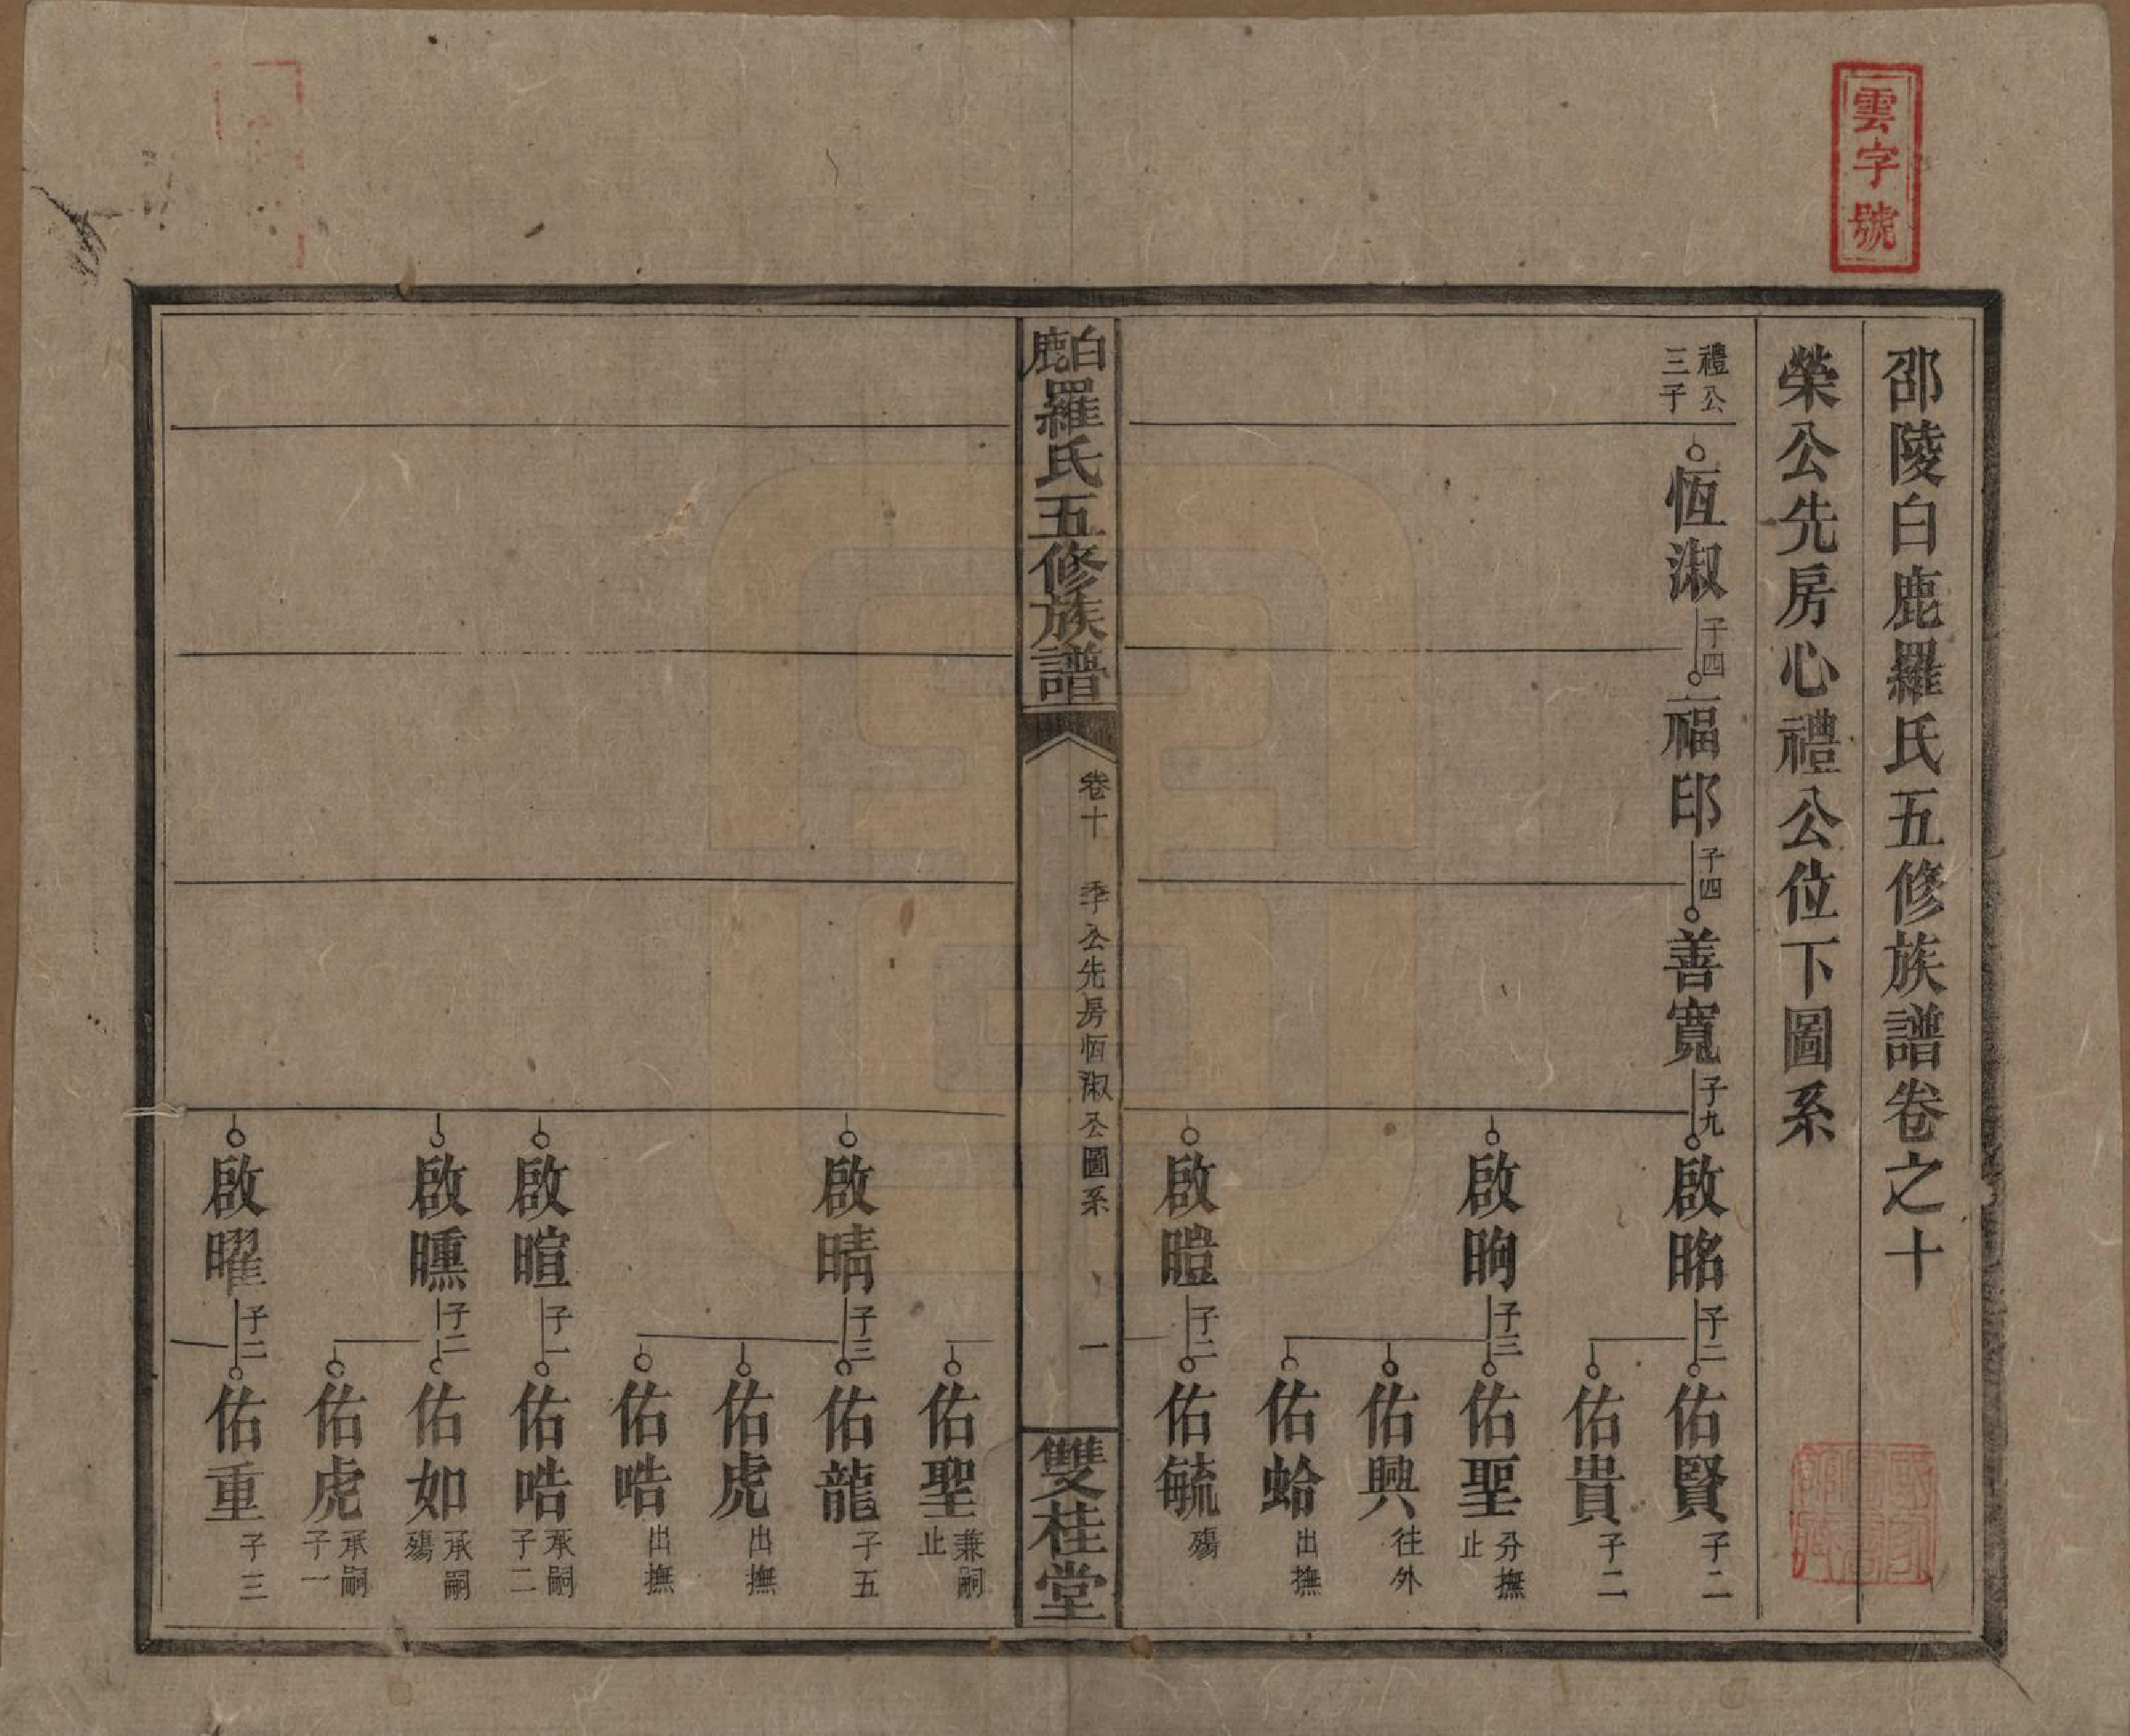 雲字號
邵陵白鹿羅氏五修族譜卷之十
榮公先房心禮公位下圖系
禮公
三子
恆淑
子四
福邱
子四
善寬
子九
啟昭
子二
佑賢
子二
佑貴
子二
啟晌
子三
佑聖
分撫
止
佑興
往外
佑蛤
出撫
啟暟
子二
佑毓
殤
白鹿羅氏五修族譜
卷十
季公先房恆淑公圖系
一
雙桂堂
佑聖
兼嗣
止
啟晴
子三
佑龍
子五
佑虎
出撫
佑晧
出撫
啟暄
子一
佑晧
承嗣
子二
啟曛
子二
佑如
承嗣
殤
佑虎
承嗣
子一
啟曜
子二
佑重
子三